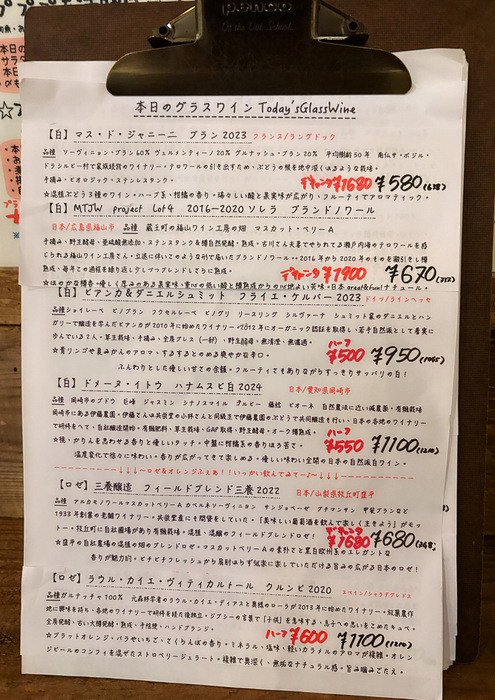 本日のグラスワイン Today'sGlassWine
【白】マス・ド・ジャニーニ ブラン2023 フランス/ラングドック
品種 ソーヴィニョン・ブラン60% ヴェルメンティーノ20% グルナッシュ・ブラン20% 平均樹齢50年 南仏サ・ボジル・
ドラシルビー村で家族経営のワイナリー・テロワールの引き出すため、ぶどうの根を地中深くはるような栽培・
手摘み・ビオロジック・ステンレスタンク・
デキャンタ¥1680 ¥580(638)
☆混植ぶどう3種のワイン・ハーブ系、柑橘の香り・瑞々しい酸と果実味が広がり、フルーティでアロマティック・
【白】MTJW project Lot4 2016-2020ソレラ ブランドノワール
日本/広島県福山市 品種 蔵王町の福山ワイン工房の畑 マスカット・ベリーA
手摘み・野生酵母・亜硫酸無添加・ステンレスタンク&樽自然発酵・熟成・古川さん夫妻でやられてる瀬戸内海のテロワールを感じ
られる福山ワイン工房さん・
デキャンタ¥1900 ¥670
【白】ビアンカ&ダニエルシュミット フライエ・ケルパー2023 ドイツ/ラインヘッセ
品種ショイレーベ ピノブラン フクセルレーベ ピノグリ リースリング シルヴァーナ シュミット家のダニエルとハン
ガリーで醸造を学んだビアンカが2010年に始めたワイナリー・2012年にオーガニック認証を取得し、若手自然派として着実に
歩んでいる2人・草生栽培・手摘み・全房プレス(一軒)、野生酵母、無清澄、無濾過・
☆青リンゴや夏みかんのアロマ・するするとのめる爽やかな辛口・
ハーフ¥500 ¥950(1045)
ふんわりとした優しい甘さの余韻・フルーティさもありながらすっきりサッパリの白!
【白】ドメーヌ・イトウ ハナムスビ白2024 日本/愛知県岡崎市
品種 岡崎市のブドウ 巨峰 ジャスミン シナノスマイル クルビー 藤稔 ピオーネ 自然農法に近い減農薬・有機栽培
岡崎市にある伊藤農園・伊藤さんは共栄堂の小林さんと同級生で伊藤農園のぶどうで共同醸造を行い・日本の各地のワイナリー
で研修をへて、自社醸造開始・有機肥料・草生栽培・GAP取得・野生酵母・オーク樽熟成・
ハーフ¥550 ¥1100(1210)
☆桃・かりんを思わせる香りと優しいタッチ・中盤に柑橘系の香りほう苦さ・
温度変化で徐々に味わい・香りが広がってきて楽しめる・優しい味わい全開の日本の自然派白ワイン・
↓↓↓ーロゼ&オレンジふぇあ!!いっかい飲んでみて〜♪ー↓↓↓
【ロゼ】三養醸造 フィールドブレンド三養2022 日本/山梨県牧丘町窪平
品種 アルカモノワールマスカットベリーA カベルネソーヴィニヨン サンジョベーゼ プチマンサン 甲斐ブランなど
1933年創業の老舗ワイナリー・共栄堂産にも間借をしていた・「美味しい葡萄酒を飲んで楽しく生きよう」がモッ
トー・牧丘町に自社圃場があり有機栽培・混植・混醸のフィールドブレンドロゼ!
デキャンタ¥1680 ¥680(748)
☆窪平の自社農場の混植の畑のブレンドロゼ・マスカットベリーAの素朴さと黒白欧州系のエレガントな
香りが魅力的・ピチピチフレッシュから肩肘はらず気楽に楽していただける旨みの広がる日本のロゼ!
【ロゼ】ラウル・カイエ・ヴィティカルトール クルンビ2020 スペイン/シャラデグレドス
品種ガルナッチャ100% 元森林学者のラウル・カイエ・ディアスと奥様のローラが2013年に始めたワイナリー・放棄農作
地に興味を持ち・各地のワイナリーで研修を経た後独立・ジプシーの言葉で「子供」を意味する、息子への思いをこめたキュベ・
全房発酵・古い大樽発酵・熟成・手除梗・ハンドプランジ・
ハーフ¥600 ¥1100(1210)
☆ブラッドオレンジ・バラやいちご・さくらんぼの香り・ミネラル・塩味・軽いカラメルのアロマが複雑・オレン
ジピールのコンフィを混ぜたストロベリージュラート・複雑で奥深く・無垢なナチュラル感・旨み噛みごたえ・